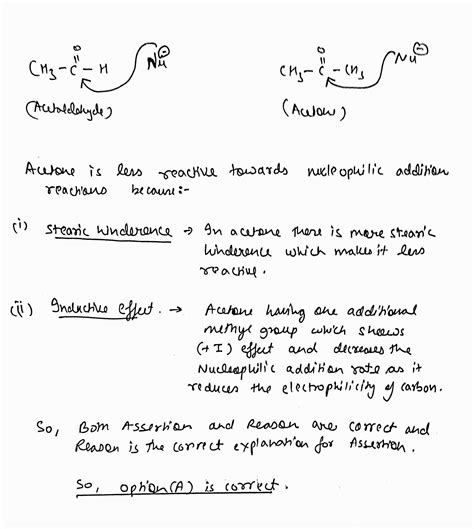 O
CH₃ – C – H Nu⊖
(Acetaldehyde)
O
CH₃ – C – CH₃ Nu⊖
(Acetone)
Acetone is less reactive towards nucleophilic addition
reactions because:-
(i) Stearic hinderence → In acetone there is more stearic
hinderence which makes it less
reactive.
(ii) Inductive effect. → Acetone having one additional
methyl group which shows
(+I) effect and decreases the
Nucleophilic addition rate as it
reduces the electrophilicity of carbon.
So, Both Assertion and Reason are correct and
Reason is the correct explanation for Assertion.
So, option (A) is correct.